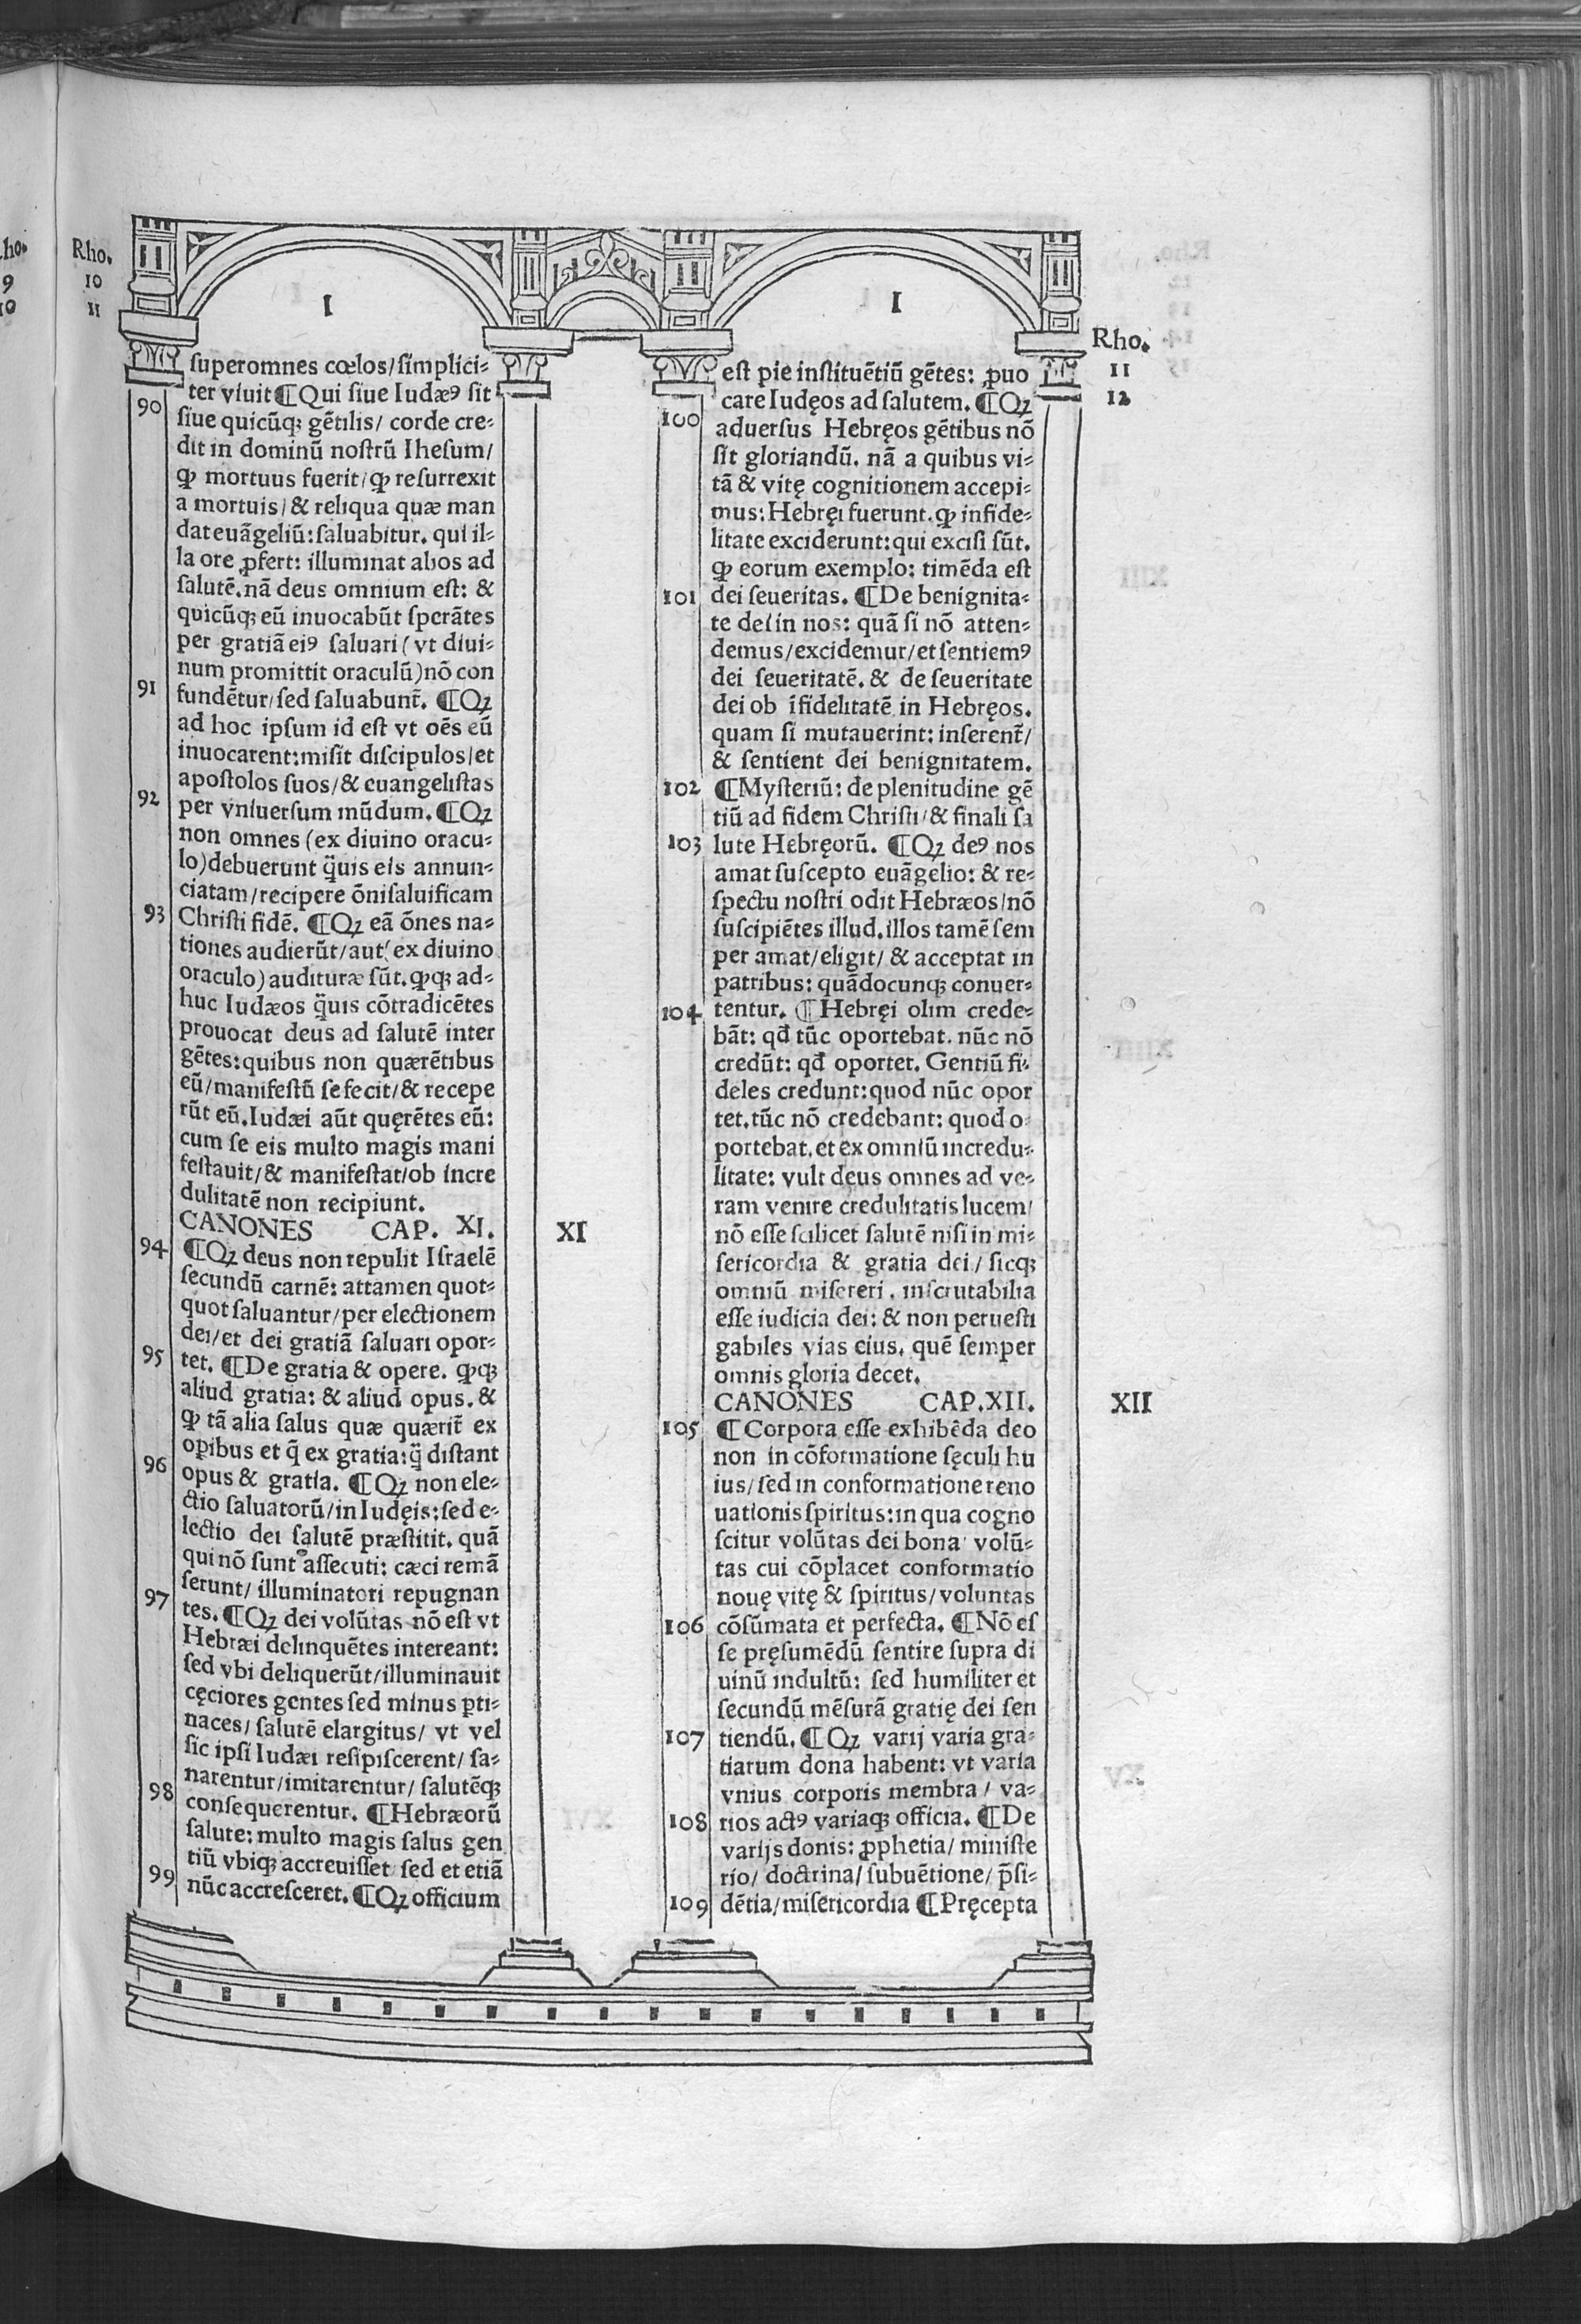 Rho.
10
11
I
superomnes cœlos/simplici-
ter viuit ¶ Qui siue Iudæꝯ sit
90
siue quicūqꝫ gētilis/ corde cre-
dit in dominū nostrū Ihesum/
ꝙ mortuus fuerit/ꝙ resurrexit
a mortuis/& reliqua quæ man
dat euāgeliū: saluabitur. qui il-
la ore ꝓfert: illuminat alios ad
salutē. nā deus omnium est: &
quicūqꝫ eū inuocabūt sperātes
per gratiā eiꝯ saluari (vt diui-
num promittit oraculū) nō con
91
fundētur/sed saluabunt̃. ¶ Qꝫ
ad hoc ipsum id est vt oēs eū
inuocarent: misit discipulos/et
apostolos suos/& euangelistas
92
per vniuersum mūdum. ¶ Qꝫ
non omnes (ex diuino oracu-
lo) debuerunt q̃uis eis annun-
ciatam/recipere ōnisaluificam
93
Christi fidē. ¶ Qꝫ eā ōnes na-
tiones audierūt/aut (ex diuino
oraculo) audituræ sūt. ꝙqꝫ ad-
huc Iudæos q̃uis cōtradicētes
prouocat deus ad salutē inter
gētes: quibus non quærētibus
eū/manifestū se fecit/& recepe
rūt eū. Iudæi aūt quęrētes eū:
cum se eis multo magis mani
festauit/& manifestat/ob incre
dulitatē non recipiunt.
CANONES CAP. XI.
XI
94
¶ Qꝫ deus non repulit Israelē
secundū carnē: attamen quot-
quot saluantur/per electionem
dei/et dei gratiā saluari opor-
95
tet. ¶ De gratia & opere. ꝙqꝫ
aliud gratia: & aliud opus. &
ꝙ tā alia salus quæ quærit̃ ex
oꝑibus et q̄ ex gratia: q̃ distant
96
opus & gratia. ¶ Qꝫ non ele-
ctio saluatorū/in Iudęis: sed e-
lectio dei salutē præstitit. quā
qui nō sunt assecuti: cæci remā
serunt/ illuminatori repugnan
97
tes. ¶ Qꝫ dei volūtas nō est vt
Hebræi delinquētes intereant:
sed vbi deliquerūt/illuminauit
cęciores gentes sed minus ꝑti-
naces/ salutē elargitus/ vt vel
sic ipsi Iudæi resipiscerent/ sa-
narentur/imitarentur/ salutēqꝫ
98
consequerentur. ¶ Hebræorū
salute: multo magis salus gen
tiū vbiqꝫ accreuisset sed et etiā
99
nūc accresceret. ¶ Qꝫ officium
I
Rho.
11
12
est pie instituētiū gētes: ꝓuo
care Iudęos ad salutem. ¶ Qꝫ
100
aduersus Hebręos gētibus nō
sit gloriandū. nā a quibus vi-
tā & vitę cognitionem accepi-
mus: Hebręi fuerunt. ꝙ infide-
litate exciderunt: qui excisi sūt.
ꝙ eorum exemplo: timēda est
101
dei seueritas. ¶ De benignita-
te dei in nos: quā si nō atten-
demus/excidemur/et sentiemꝯ
dei seueritatē. & de seueritate
dei ob īfidelitatē in Hebręos.
quam si mutauerint: inserent̃/
& sentient dei benignitatem.
102
¶ Mysteriū: de plenitudine gē
tiū ad fidem Christi/& finali sa
103
lute Hebręorū. ¶ Qꝫ deꝯ nos
amat suscepto euāgelio: & re-
spectu nostri odit Hebræos/nō
suscipiētes illud. illos tamē sem
per amat/eligit/ & acceptat in
patribus: quādocunqꝫ conuer-
104
tentur. ¶ Hebręi olim crede-
bāt: qđ tūc oportebat. nūc nō
credūt: qđ oportet. Gentiū fi-
deles credunt: quod nūc opor
tet. tūc nō credebant: quod o
portebat. et ex omniū incredu-
litate: vult deus omnes ad ve-
ram venire credulitatis lucem/
nō esse scilicet salutē nisi in mi-
sericordia & gratia dei/ sicqꝫ
omniū misereri. inscrutabilia
esse iudicia dei: & non peruesti
gabiles vias eius. quē semper
omnis gloria decet.
CANONES CAP.XII.
XII
105
¶ Corpora esse exhibēda deo
non in cōformatione sęculi hu
ius/ sed in conformatione reno
uationis spiritus: in qua cogno
scitur volūtas dei bona/ volū-
tas cui cōplacet conformatio
nouę vitę & spiritus/ voluntas
106
cōsūmata et perfecta. ¶ Nō es
se pręsumēdū sentire supra di
uinū indultū: sed humiliter et
secundū mēsurā gratię dei sen
107
tiendū. ¶ Qꝫ varij varia gra-
tiarum dona habent: vt varia
vnius corporis membra/ va-
108
rios actꝯ variaqꝫ officia. ¶ De
varijs donis: ꝓphetia/ ministe
rio/ doctrina/ subuētione/ p̄si-
109
dētia/misericordia ¶ Pręcepta